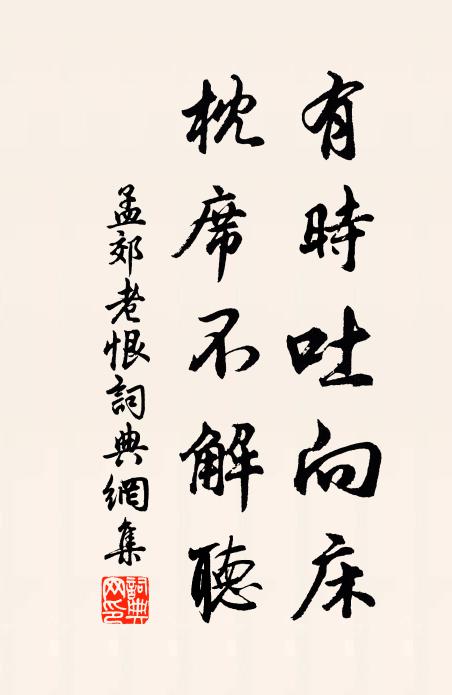 有時吐向床
枕席不解聽
孟郊老恨詞典網集
詞典
网印